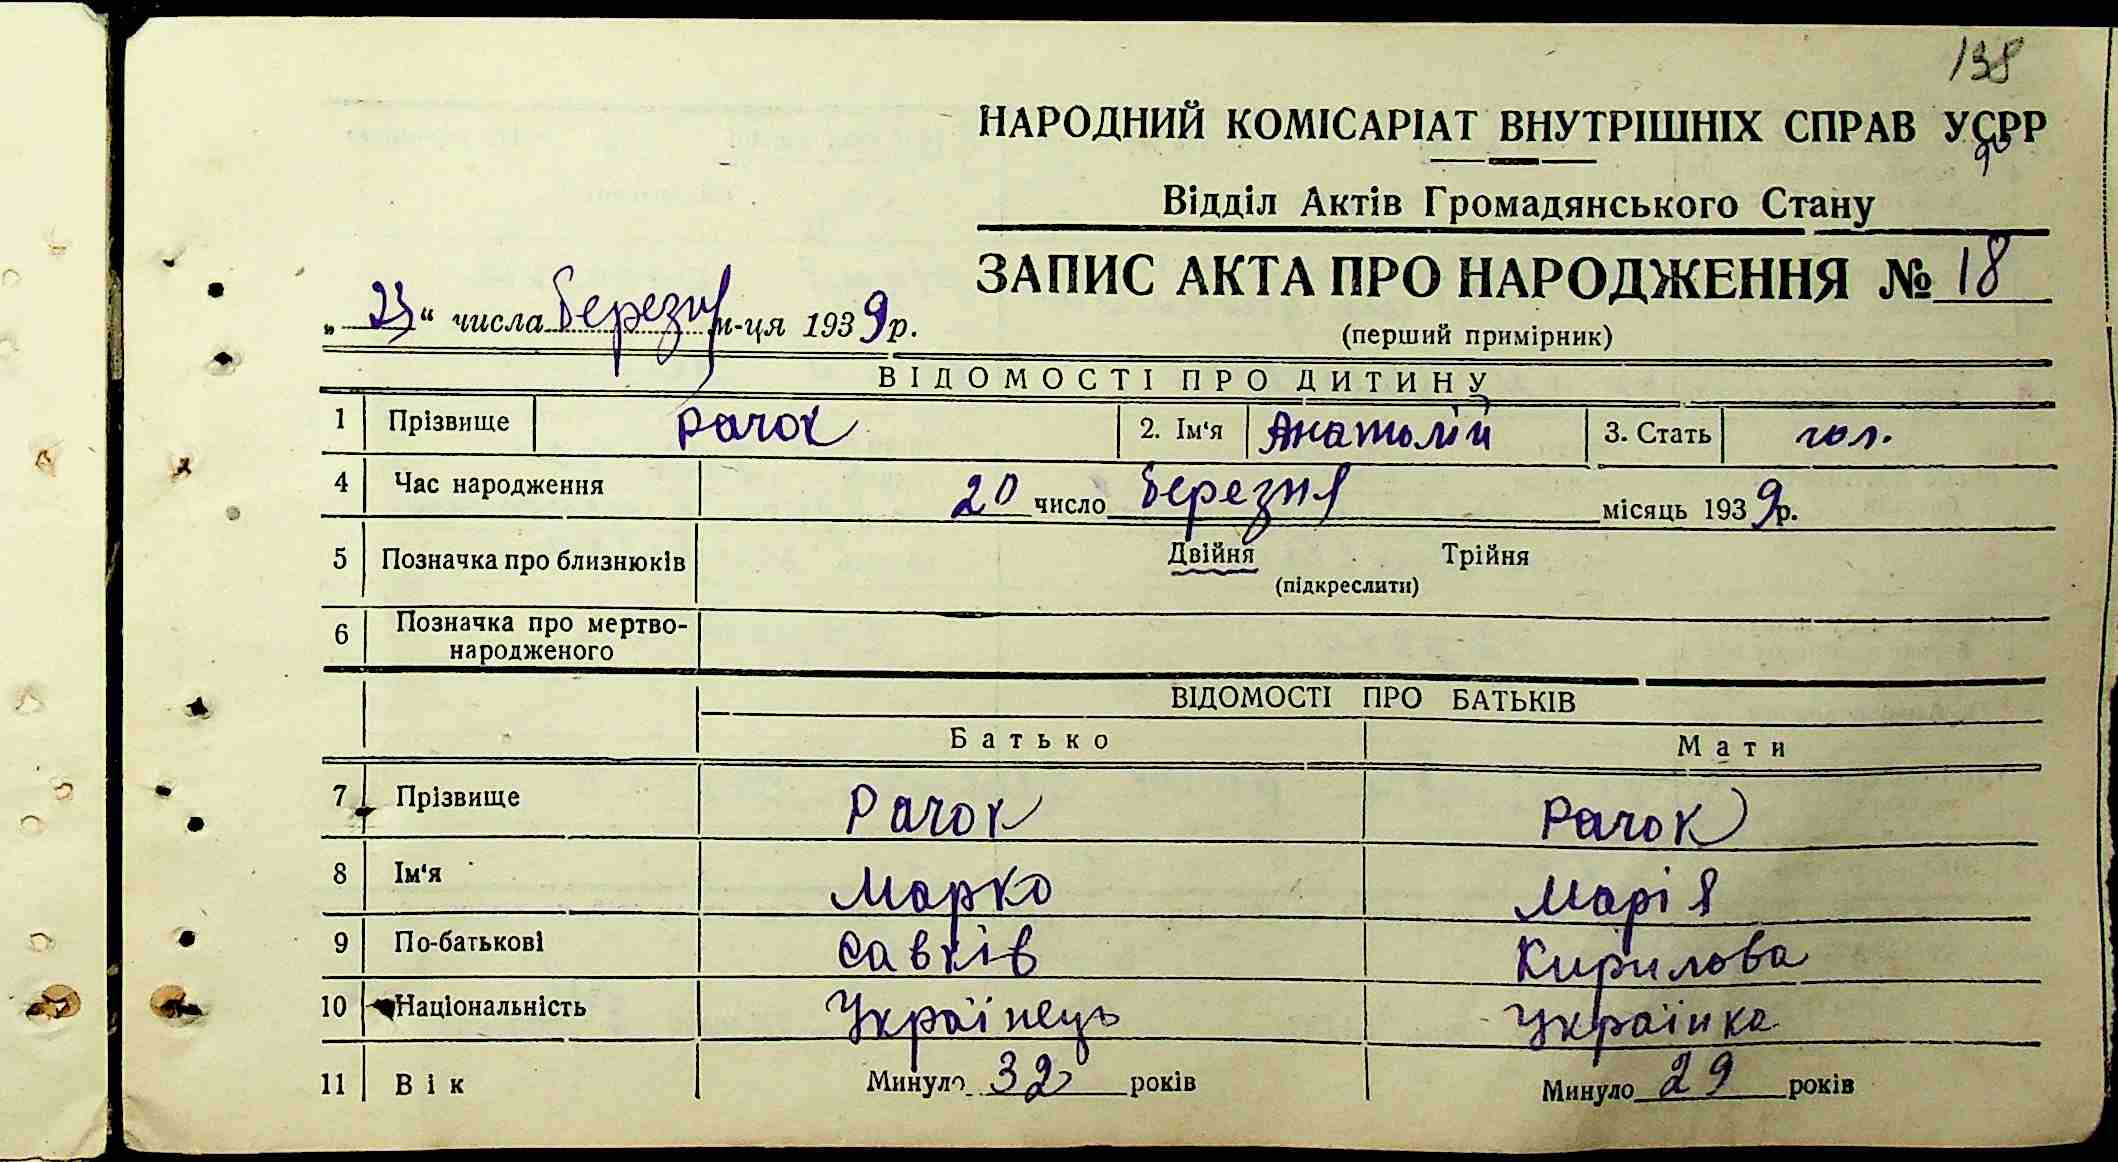 138
НАРОДНИЙ КОМІСАРІАТ ВНУТРІШНІХ СПРАВ УСРР
Відділ Актів Громадянського Стану
ЗАПИС АКТА ПРО НАРОДЖЕННЯ № 18
„23“ числа Березня м-ця 1939 р.
(перший примірник)
ВІДОМОСТІ ПРО ДИТИНУ
1 Прізвище Рачок 2. Ім'я Анатолій 3. Стать чол.
4 Час народження 20 число Березня місяць 1939 р.
5 Позначка про близнюків Двійня Трійня
(підкреслити)
6 Позначка про мертво-
народженого
ВІДОМОСТІ ПРО БАТЬКІВ
Батько Мати
7 Прізвище Рачок Рачок
8 Ім'я Марко Марія
9 По-батькові Савків Кирилова
10 Національність Українець Українка
11 Вік Минуло 32 років Минуло 29 років